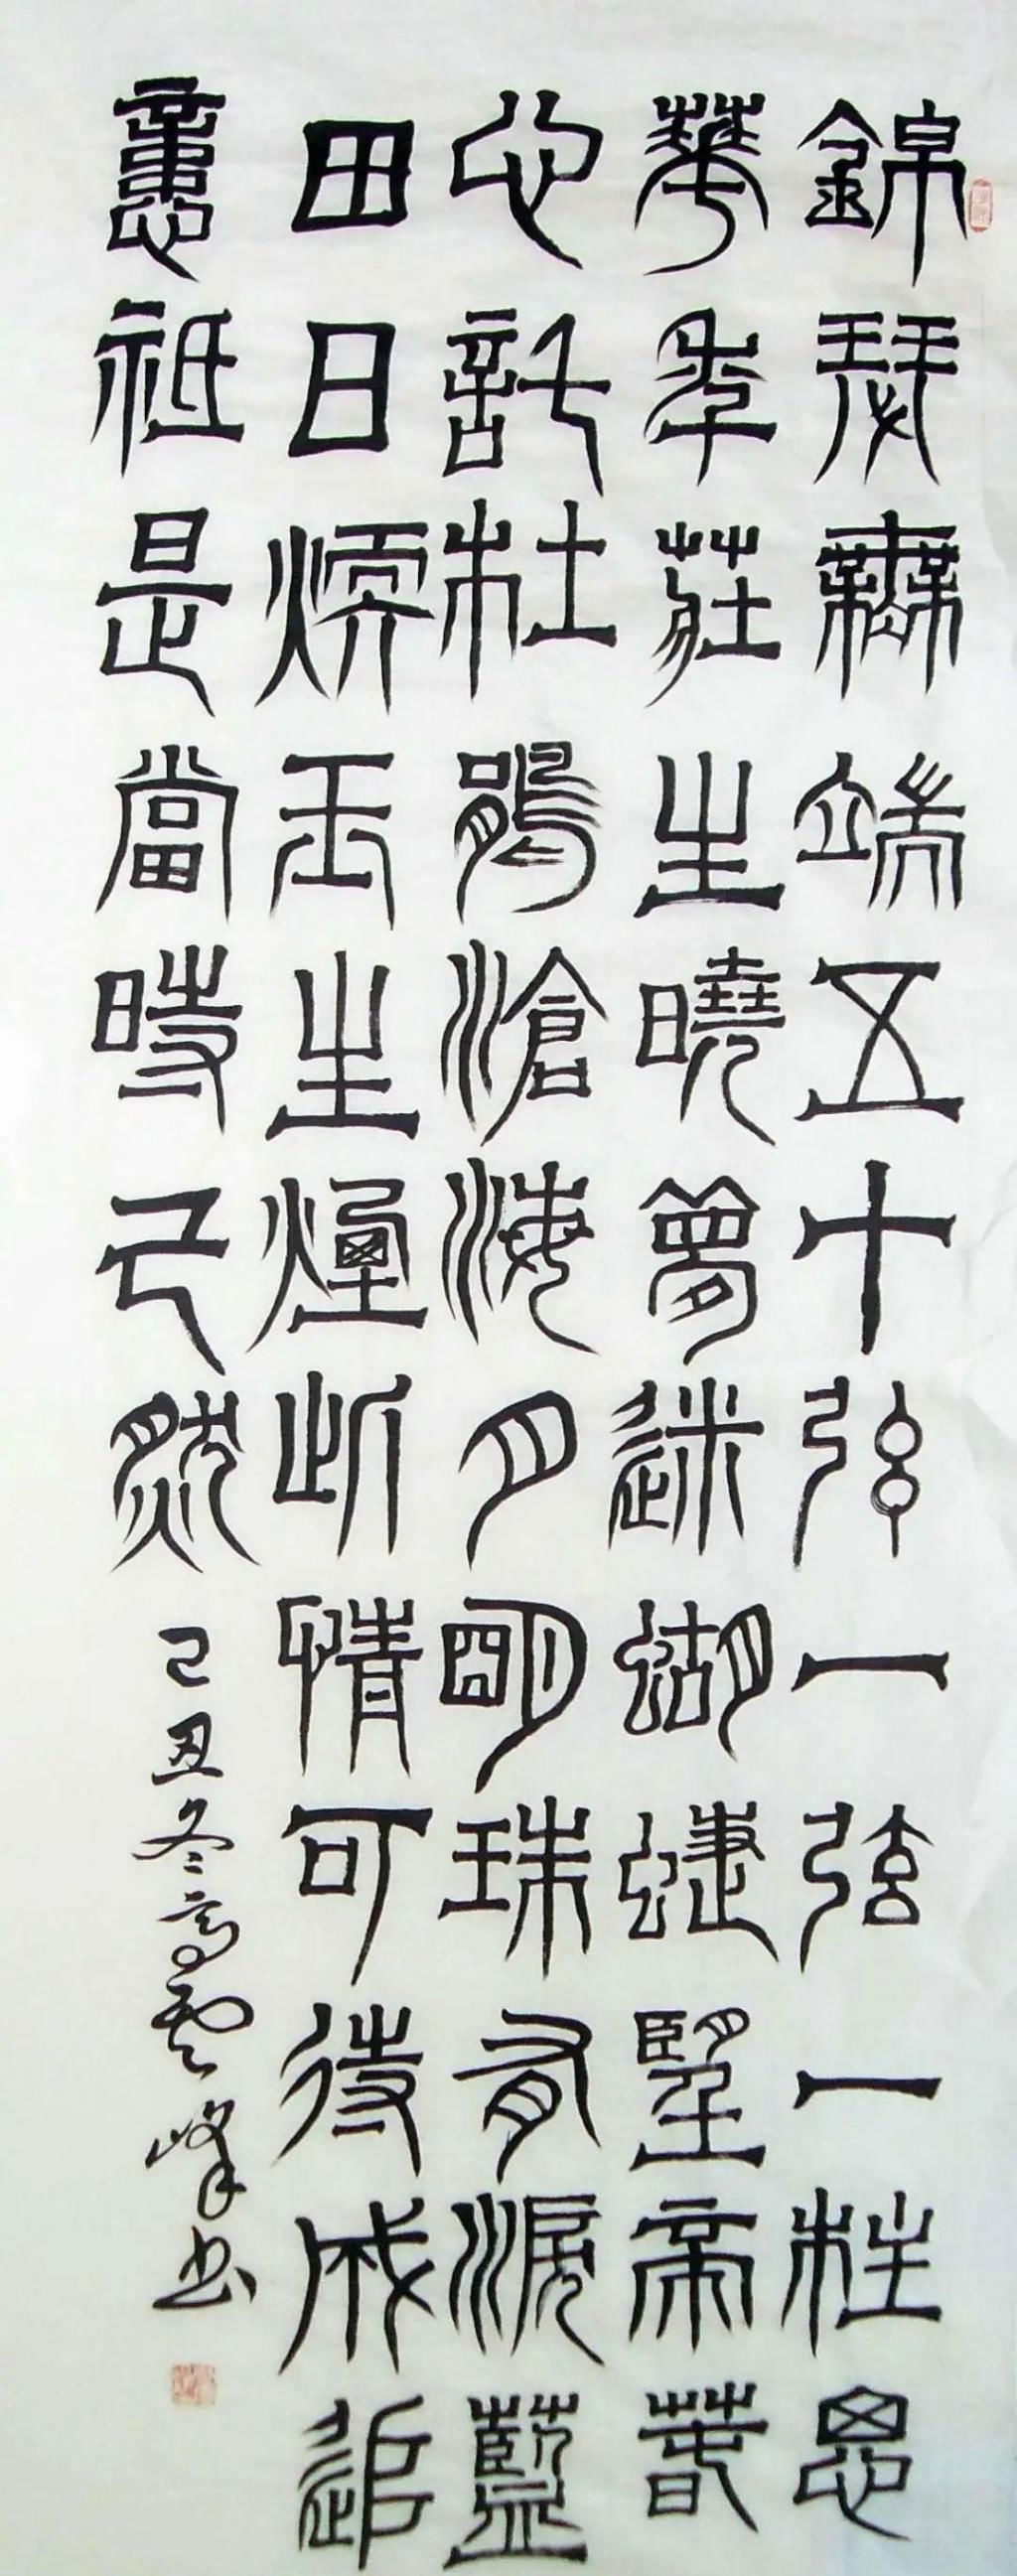 錦瑟無端五十弦一弦一柱思
華年莊生曉夢迷蝴蝶望帝春
心託杜鵑滄海月明珠有淚藍
田日煗玉生煙此情可待成追
憶祗是當時已然
己丑冬高雲峰书